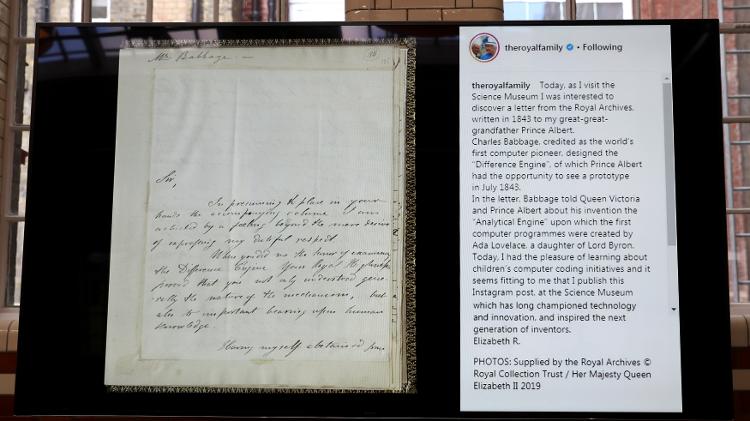 Mr Babbage —
Sir,
In presuming to place in your
hands the accompanying volume I am
actuated by a feeling beyond the mere desire
of expressing my dutiful respect.
When you did me the honor of examining
the Difference Engine Your Royal Highness
proved that you not only understood gene-
rally the nature of the mechanism, but
also its important bearing upon human
knowledge.
Having myself abstained from
theroyalfamily • Following
theroyalfamily Today, as I visit the
Science Museum I was interested to
discover a letter from the Royal Archives,
written in 1843 to my great-great-
grandfather Prince Albert.
Charles Babbage, credited as the world's
first computer pioneer, designed the
"Difference Engine", of which Prince Albert
had the opportunity to see a prototype
in July 1843.
In the letter, Babbage told Queen Victoria
and Prince Albert about his invention the
"Analytical Engine" upon which the first
computer programmes were created by
Ada Lovelace, a daughter of Lord Byron.
Today, I had the pleasure of learning about
children's computer coding initiatives and it
seems fitting to me that I publish this
Instagram post, at the Science Museum
which has long championed technology
and innovation, and inspired the next
generation of inventors.
Elizabeth R.
PHOTOS: Supplied by the Royal Archives ©
Royal Collection Trust / Her Majesty Queen
Elizabeth II 2019